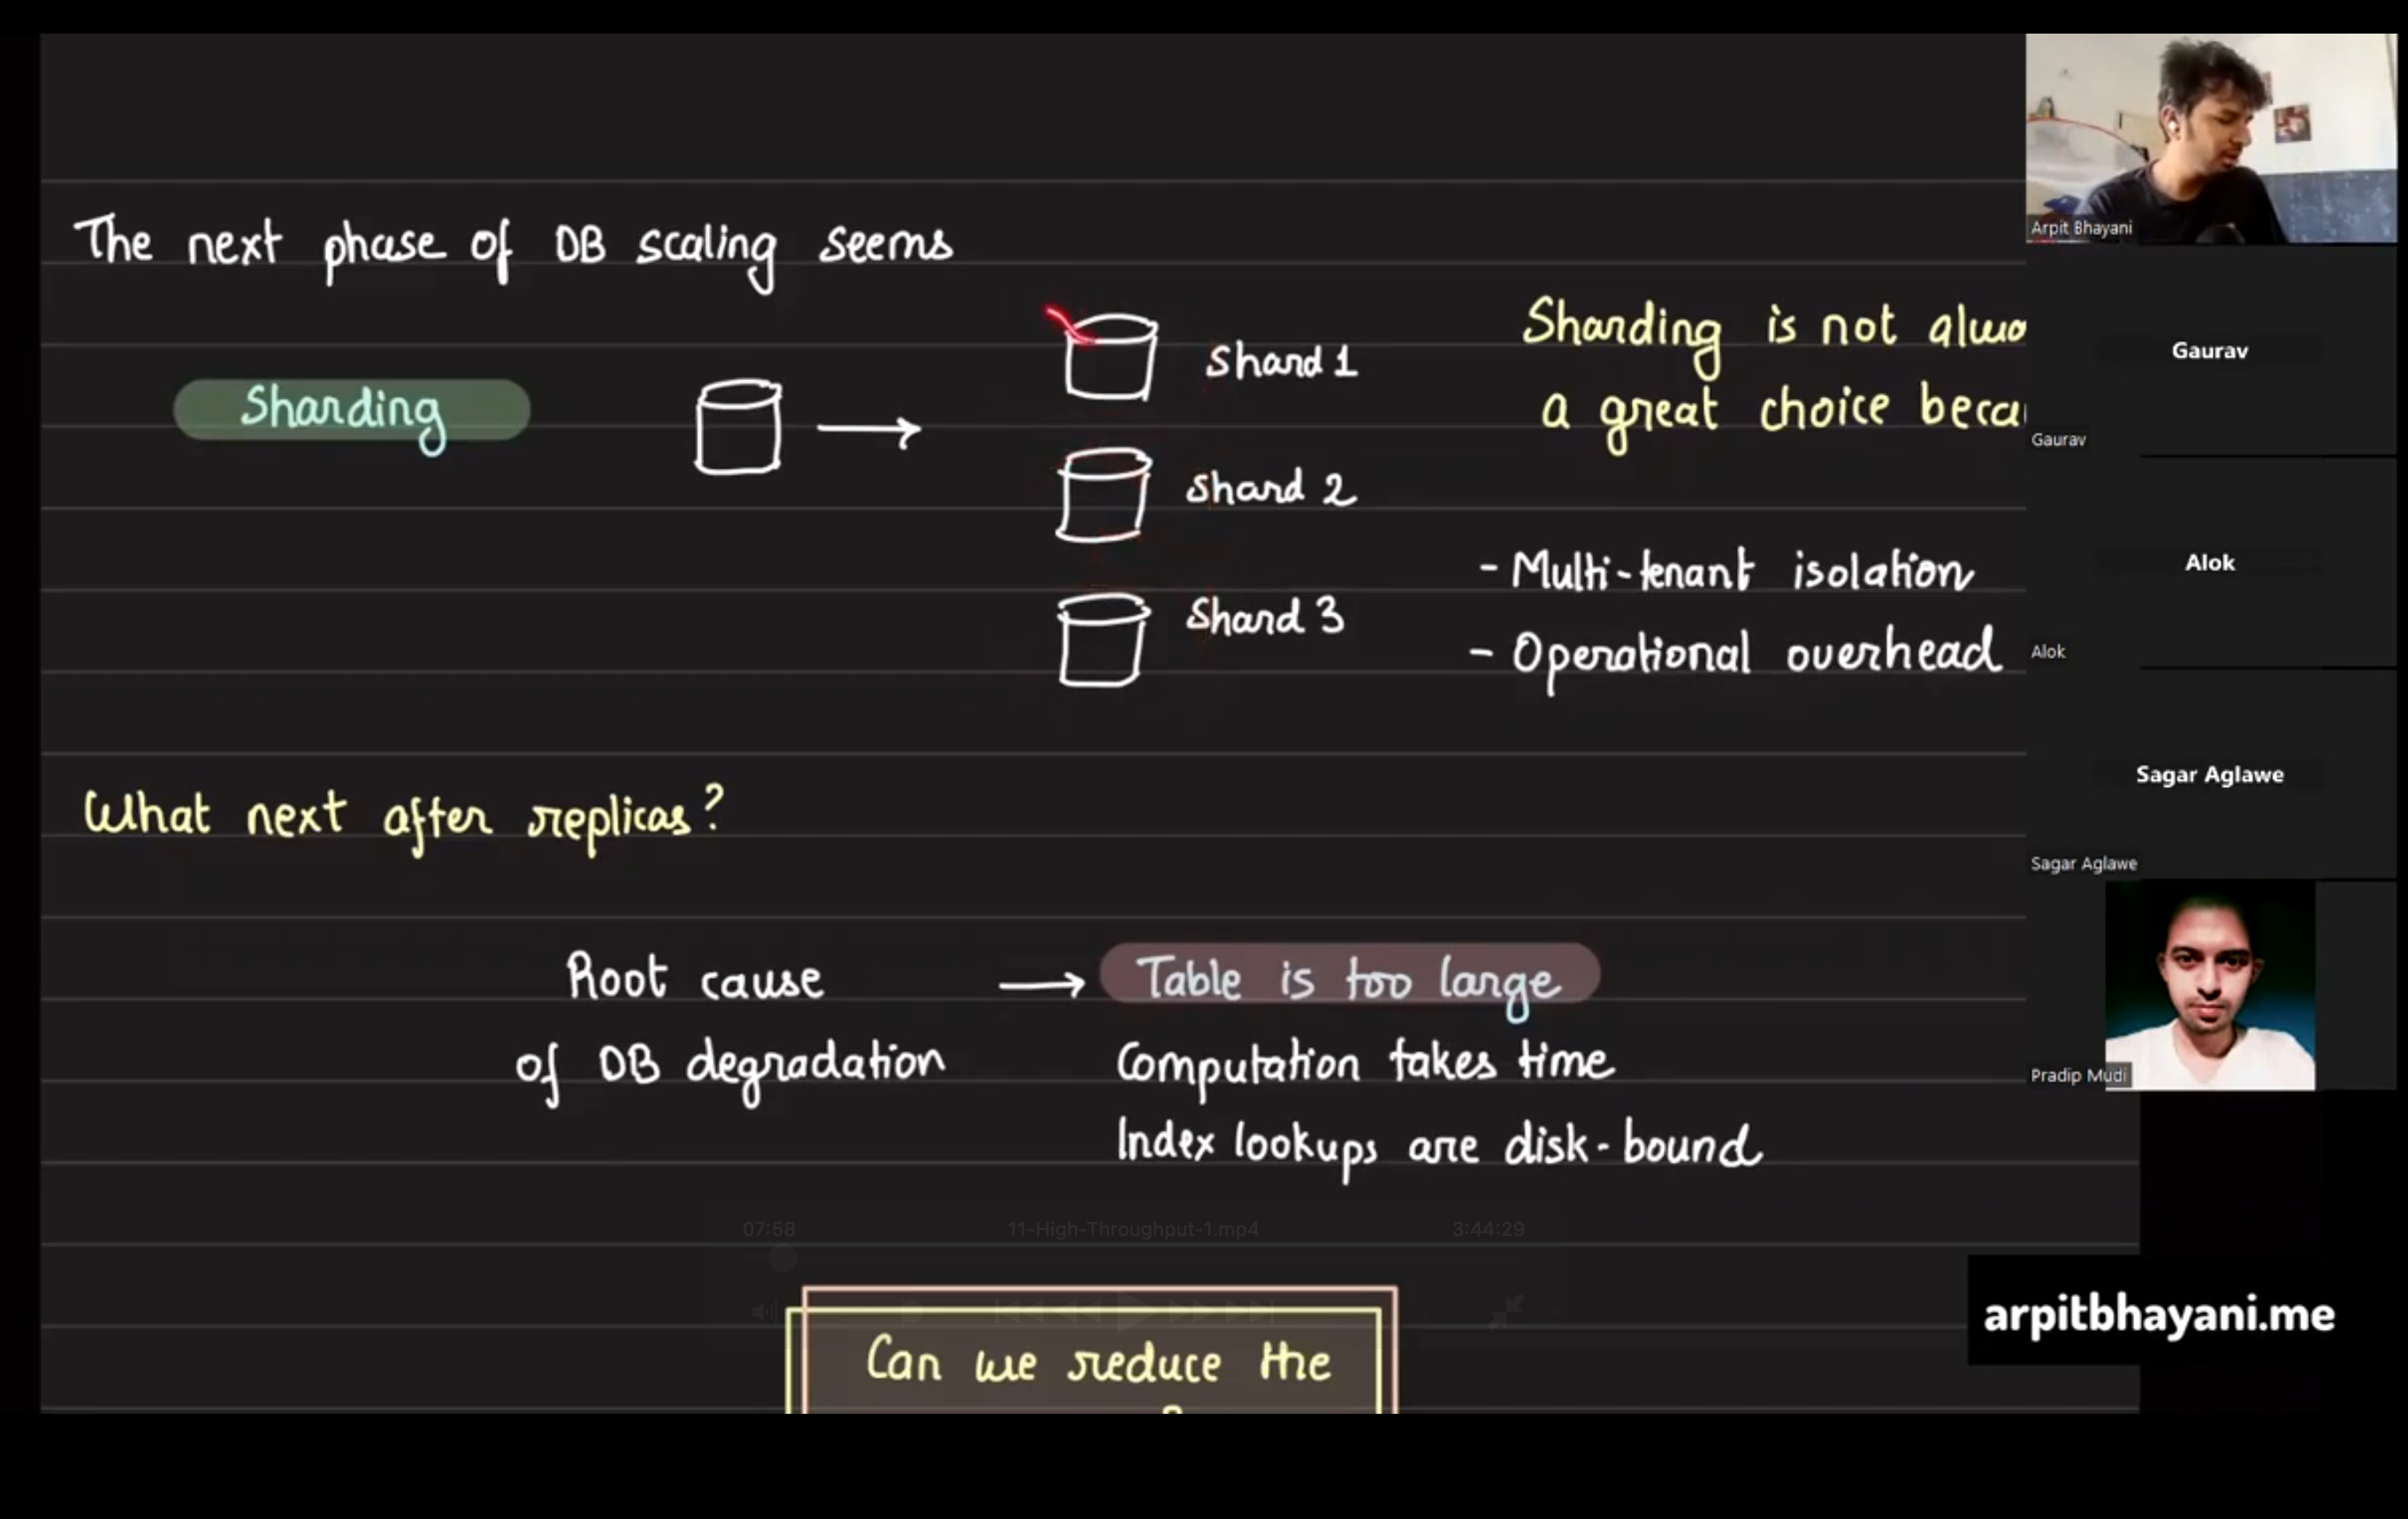 The next phase of DB scaling seems
Sharding
Shard 1
Shard 2
Shard 3
Sharding is not alwa
a great choice beca
- Multi-tenant isolation
- Operational overhead
What next after replicas?
Root cause
of DB degradation
Table is too large
Computation takes time
Index lookups are disk-bound
07:58
11-High-Throughput-1.mp4
3:44:29
Can we reduce the
Arpit Bhayani
Gaurav
Gaurav
Alok
Alok
Sagar Aglawe
Sagar Aglawe
Pradip Mudi
arpitbhayani.me